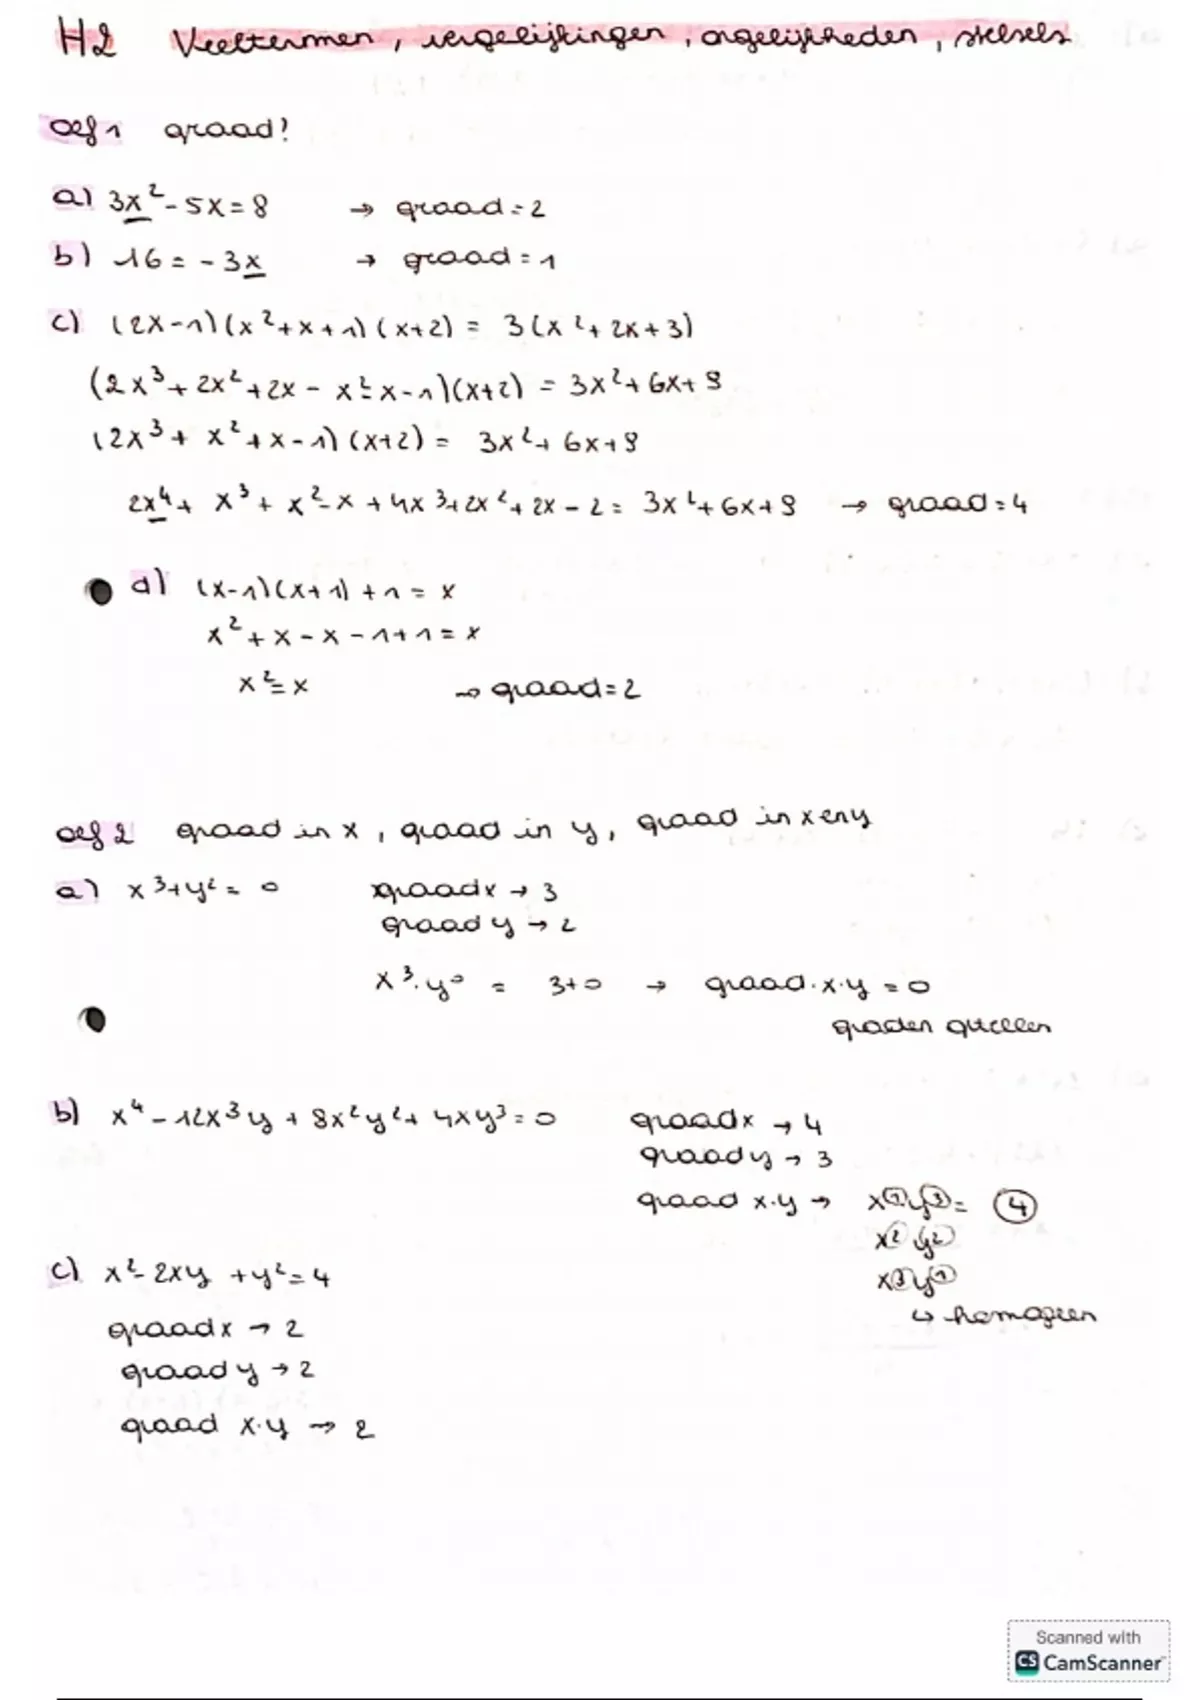 H2 Veeltermen, vergelijkingen, ongelijkheden, stelsels
oef 1 graad?
a) 3x² - 5x = 8 → graad = 2
b) 16 = - 3x → graad = 1
c) (2x-1)(x²+x+1)(x+2) = 3(x²+2x+3)
(2x³+2x²+2x-x²-x-1)(x+2) = 3x²+6x+9
(2x³+x²+x-1)(x+2) = 3x²+6x+9
2x⁴+x³+x²-x+4x³+2x²+2x-2 = 3x²+6x+9 → graad = 4
d) (x-1)(x+1)+1 = x
x²+x-x-1+1 = x
x² = x → graad = 2
oef 2 graad in x, graad in y, graad in x en y
a) x³+y² = 0 graad x → 3
graad y → 2
x³·y⁰ = 3+0 → graad·x·y = 0
graden optellen
b) x⁴-12x³y+8x²y²+4xy³ = 0 graad x → 4
graad y → 3
graad x·y → x¹y³ = 4
x² y²
x³y¹
↳ homogeen
c) x²-2xy+y² = 4
graad x → 2
graad y → 2
graad x·y → 2
Scanned with
CS CamScanner